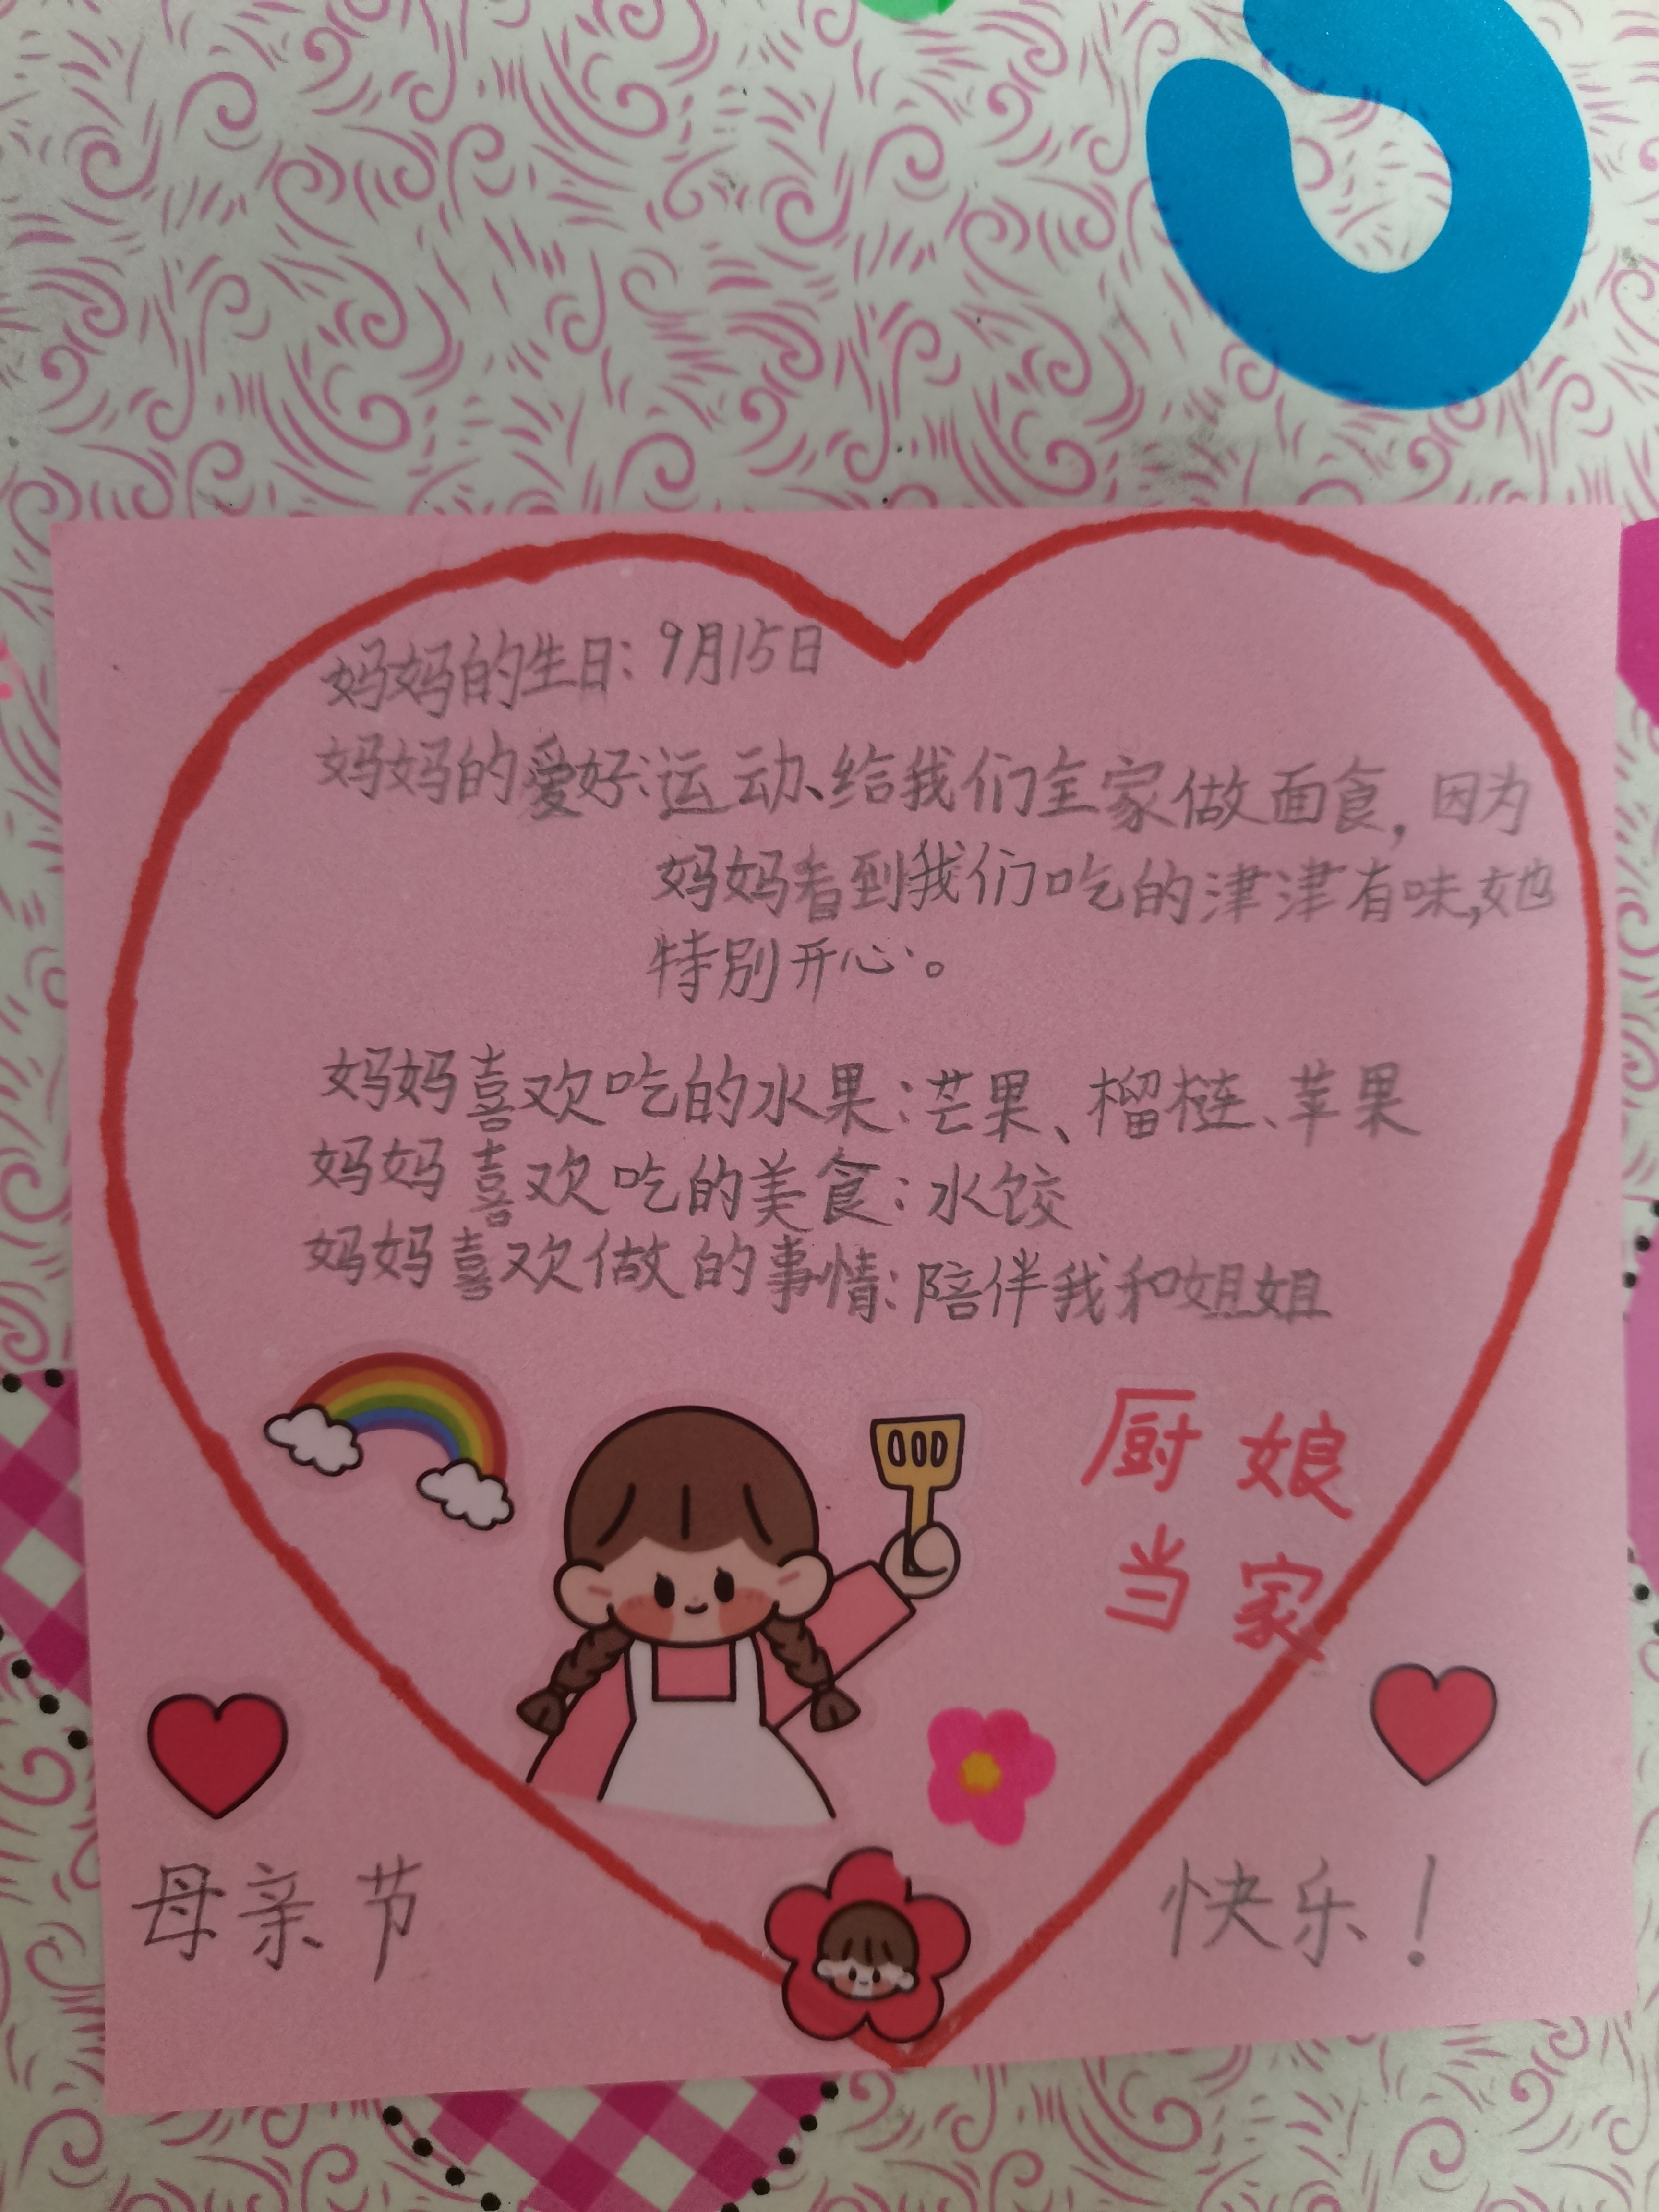 妈妈的生日：9月15日
妈妈的爱好：运动、给我们全家做面食，因为
妈妈看到我们吃的津津有味，她
特别开心。
妈妈喜欢吃的水果：芒果、榴梿、苹果
妈妈喜欢吃的美食：水饺
妈妈喜欢做的事情：陪伴我和姐姐
厨娘
当家
母亲节 快乐！